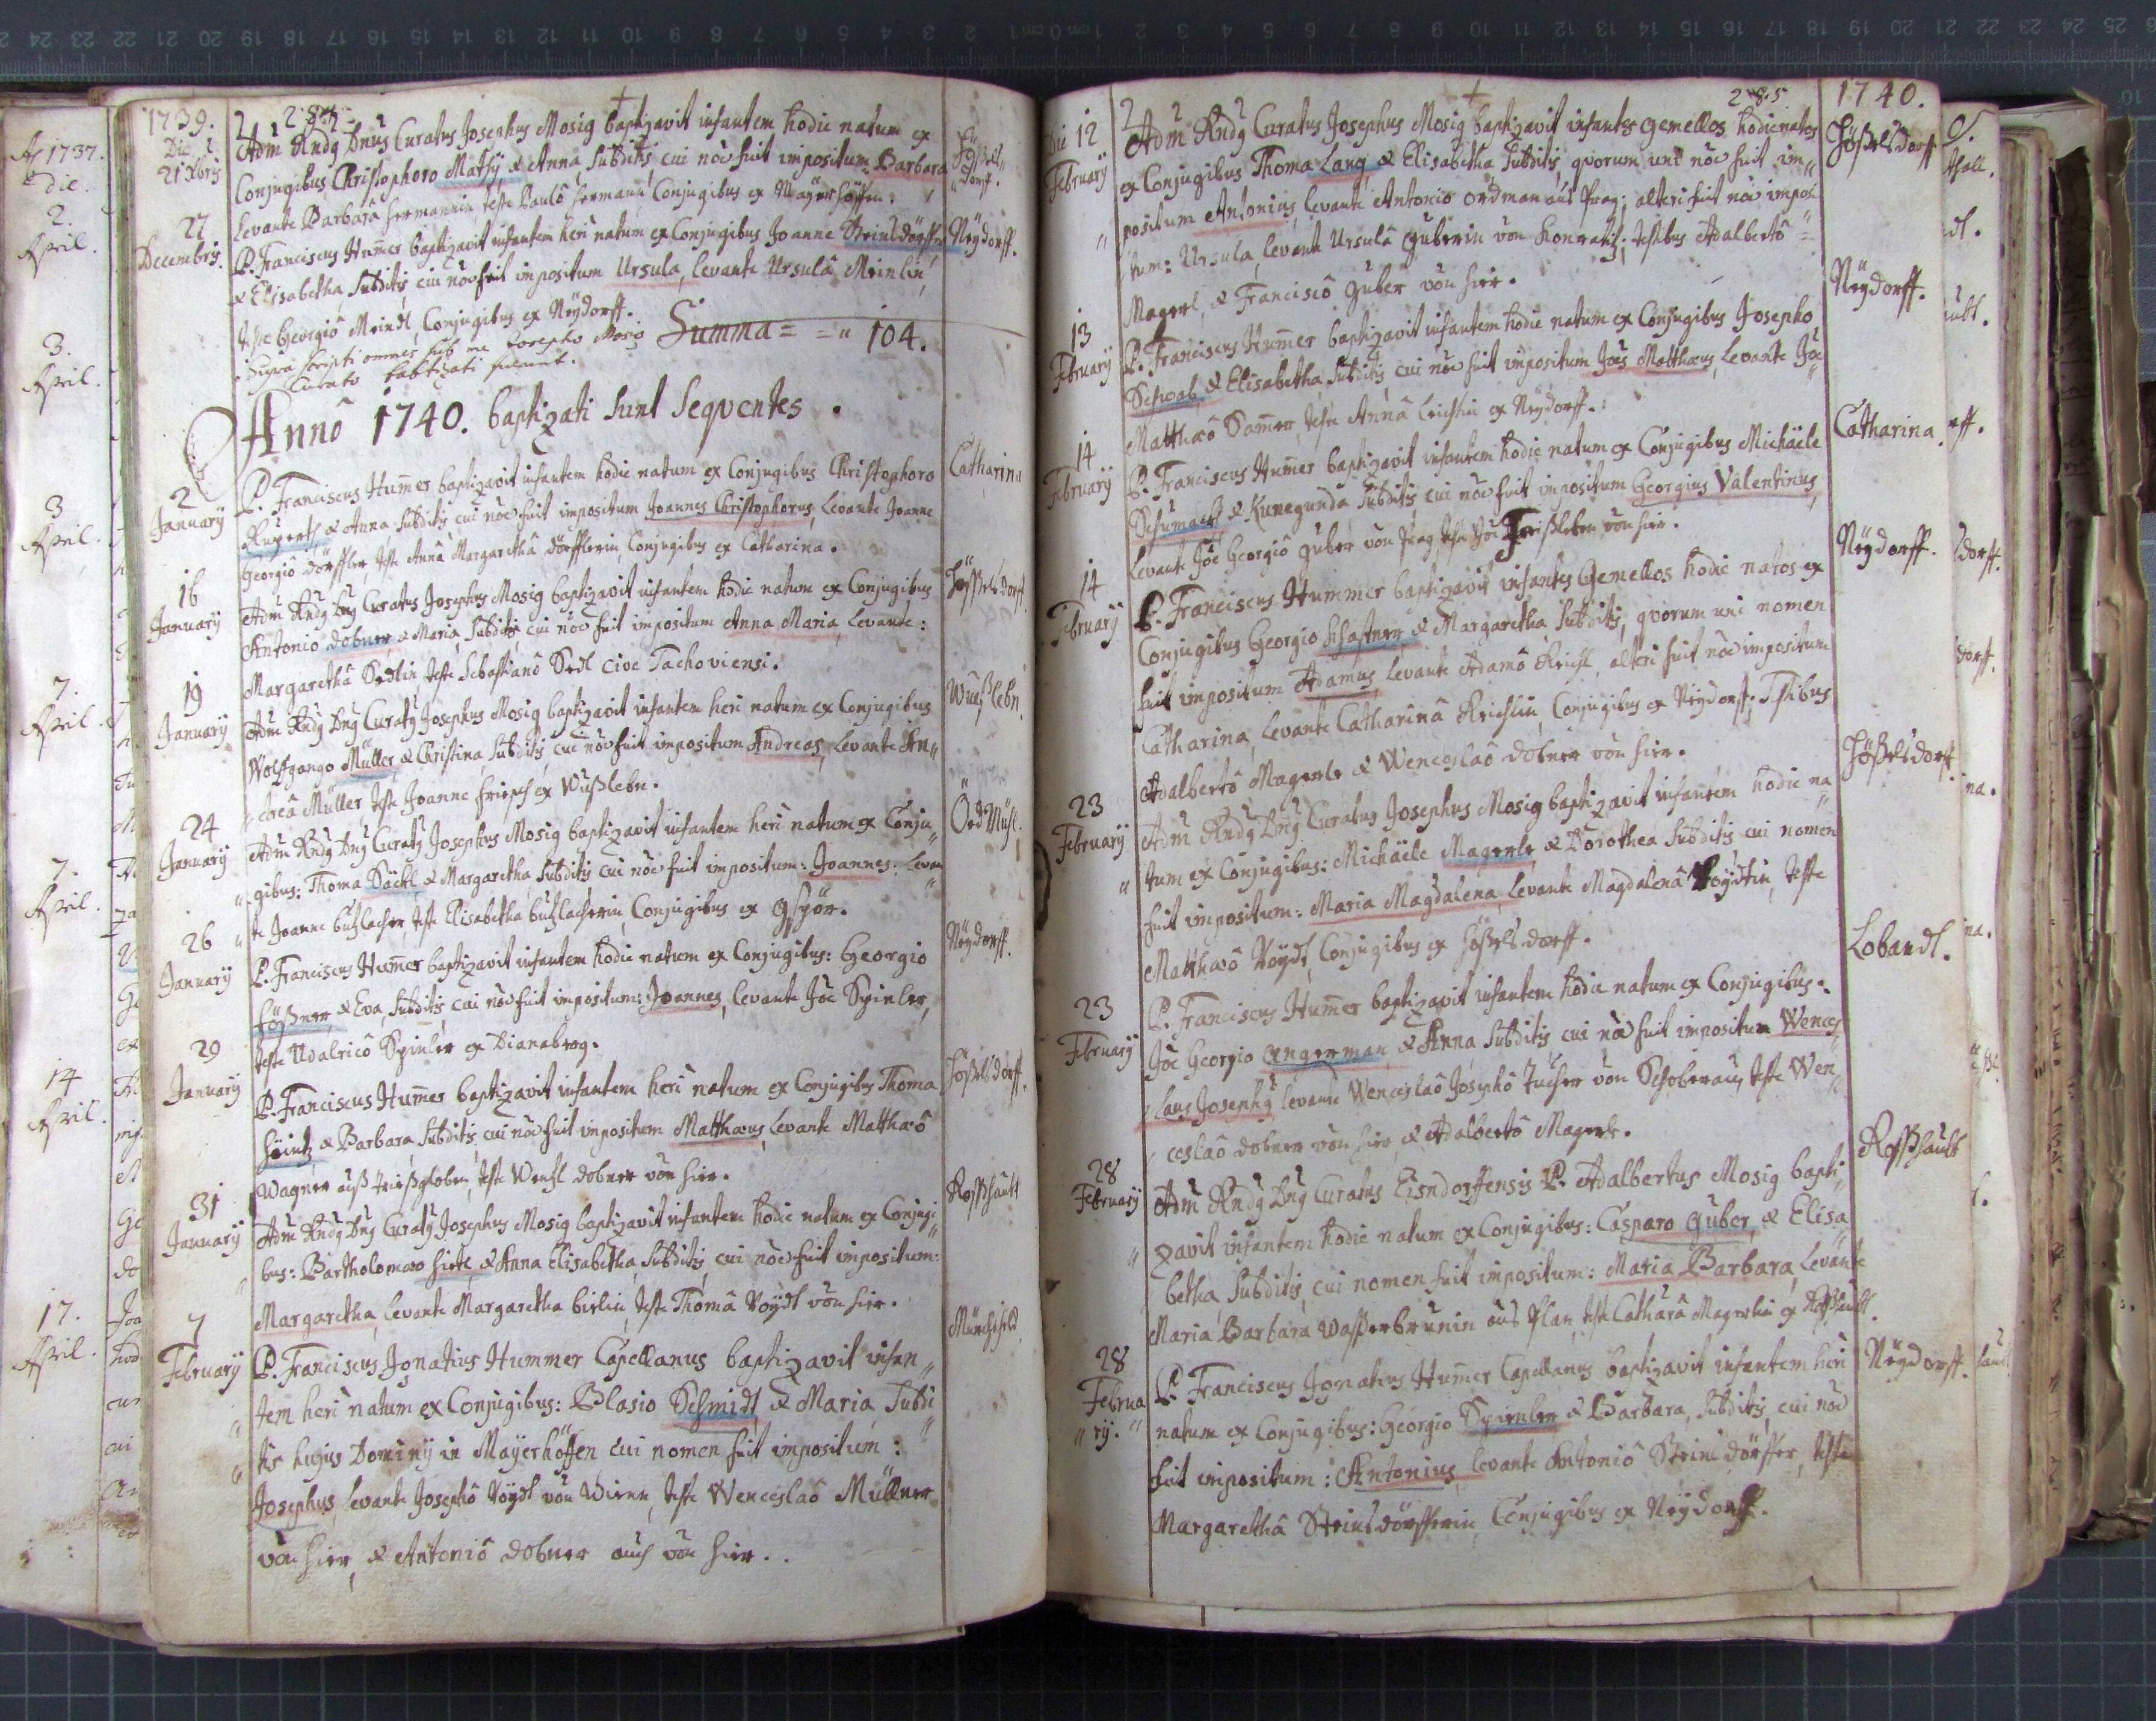 1739.
284
Die 21 Xbris
Adm Rndg Dnus Curatus Josephus Mosig baptizavit infantem hodie natum ex
Conjugibus Christophoro Mathy & Anna, subditis, cui nōe fuit impositum Barbara
Levante Barbarâ Hermannin teste Paulô Hermann Conjugibus ex Mayerhöffen.
Hößels-
dorff.
27
Decembris
P. Franciscus Hum̄er baptizavit infantem heri natum ex Conjugibus Joanne Steinsdörffer
& Elisabetha subditis, cui nōe fuit impositum Ursula, levante Ursulâ Meinlin,
teste Georgiô Meindl, Conjugibus ex Neydorff.
Neydorff.
Supra scripti omnes sub me Josepho Mosig
Curato babtizati fuerunt.
Summa = = " 104.
Annô 1740. baptizati sunt Seqventes.
2
January
P. Franciscus Hum̄er baptizavit infantem hodie natum ex Conjugibus Christophoro
Ruperth & Anna, subditis, cui nōe fuit impositum Joannes Christophorus, Levante Joanne
Georgiô Dörffler, teste Annâ Margarethâ Dörfflerin, Conjugibus ex Catharina.
Catharina
16
January
Adm Rndg Dng Curatus Josephus Mosig baptizavit infantem hodie natum ex Conjugibus
Antoniô Dobner & Maria, subditis, cui nōe fuit impositum Anna Maria, Levante:
Margarethâ Sedlin teste Sebastianô Sedl cive Tachoviensi.
Hößelsdorff
19
January
Adm Rndg Dng Curatg Josephus Mosig baptizavit infantem heri natum ex Conjugibus
Wolffgango Müller, & Christina subditis, cui nōe fuit impositum Andreas, Levante An-
dreâ Müller, teste Joanne Friepsch ex Wußlebn.
Wußlebn.
24
January
Adm Rndg Dng Curatg Josephus Mosig baptizavit infantem heri natum ex Conju-
gibus: Thoma Säckl & Margaretha, subditis, cui nōe fuit impositum: Joannes. Levan
te Joanne Butzlacher, teste Elisabetha Butzlacherin, Conjugibus ex Gspör.
Öed Mühl.
26
January
P. Franciscus Hum̄er baptizavit infantem hodie natum ex Conjugibus: Georgio
Hößner & Eva, subditis, cui nōe fuit impositum: Joannes, levante Jōe Spinler,
teste Udalricô Spinler ex Dianabrg.
Neydorff.
29
January
P. Franciscus Hum̄er baptizavit infantem heri natum ex Conjugibus Thoma
Heintz & Barbara, subditis, cui nōe fuit impositum Matthæus, Levante Matthæô
Wagner auß Frießgloben, teste Wentzl Dobner von hier.
Hößelsdorff.
31
January
Adm Rndg Dng Curatg Josephus Mosig baptizavit infantem hodie natum ex Conjugi
bus: Bartholomæo Hirtl & Anna Elisabetha, subditis, cui nōe fuit impositum:
Margaretha, levante Margaretha Birlin, teste Thomâ Voydt von hier.
Roßhaubt
7
February
P. Franciscus Ignatius Hummer Capellanus baptizavit infan-
tem heri natum ex Conjugibus: Blasio Schmidt & Maria subdi
tis hujus Dominÿ in Mayerhöffen cui nomen fuit impositum:
Josephus, levante Josephô Voydt von Wienn, teste Wenceslaô Müllner
von hier, & Antoniô Dobner auch von hier.
285
1740.
Die 12
February
Adm Rndg Curatus Josephus Mosig baptizavit infantes gemellos hodie natos
ex Conjugibus Thoma Lang & Elisabetha Subditis, qvorum uni nōe fuit im-
positum Antonius, levante Antonio Ordman aus Prag; alteri fuit nōe imposi
tum: Ursula, levante Ursulâ Guberin von Honratiz; testibus Adalbertô
Magerl, & Franciscô Guber von hier.
Hößelsdorff
13
February
P. Franciscus Hum̄er baptizavit infantem hodie natum ex Conjugibus Josepho
Schwab & Elisabetha, subditis, cui nōe fuit impositum Joes Matthæus, Levante Jōe
Matthæô Sam̄er, teste Annâ Leichtlin ex Neydorff.
Neydorff.
14
February
P. Franciscus Hum̄er baptizavit infantem hodie natum ex Conjugibus Michäele
Schumacher & Kunegunda Subditis, cui nōe fuit impositum Georgius Valentinus
Levante Jōe Georgiô Guber von Prag, teste Jōe Frißleben von hier.
Catharina
14
February
P. Franciscus Hummer baptizavit infantes Gemellos hodie natos ex
Conjugibus Georgio Schaffner & Margaretha Subditis, qvorum uni nomen
fuit impositum Adamus, Levante Adamô Reichl, alteri fuit nōe impositum
Catharina, Levante Catharinâ Reichlin, Conjugibus ex Neydorff. Testibus
Adalbertô Magerle & Wenceslaô Dobner von hier.
Neydorff.
23
February
Adm Rndg Dng Curatus Josephus Mosig baptizavit infantem hodie na
tum ex Conjugibus: Michäele Magerle & Dorothea Subditis cui nomen
fuit impositum: Maria Magdalena, Levante Magdalenâ Voydtin, teste
Matthæô Voydt, Conjugibus ex Hößelsdorff.
Hößelsdorff
23
February
P. Franciscus Hum̄er baptizavit infantem hodie natum ex Conjugibus
Jōe Georgio Angerman & Anna Subditis cui nōe fuit impositum Wences
laus Josephg, levante Wenceslaô Josephô Tucher von Schoberau, teste Wen-
ceslaô Dobner von hier, & Adalbertô Magerle.
Lobandl.
28
February
Adm Rndg Dng Curatus Eisndorffensis P. Adalbertus Mosig bapti-
zavit infantem hodie natum ex Conjugibus: Casparo Guber, & Elisa
betha, subditis, cui nomen fuit impositum: Maria Barbara, Levante
Maria Barbara Waßerbrunin aus Plan, teste Catharâ Magerlin ex Roßhaubt.
Roßhaubt
28
Februa
ry.
P. Franciscus Ignatius Hum̄er Capellanus baptizavit infantem heri
natum ex Conjugibus: Georgio Spienler & Barbara, subditis, cui nōe
fuit impositum: Antonius, levante Antoniô Steinsdörffer, teste
Margarethâ Steinsdörfferin Conjugibus ex Neydorff.
Neydorff.